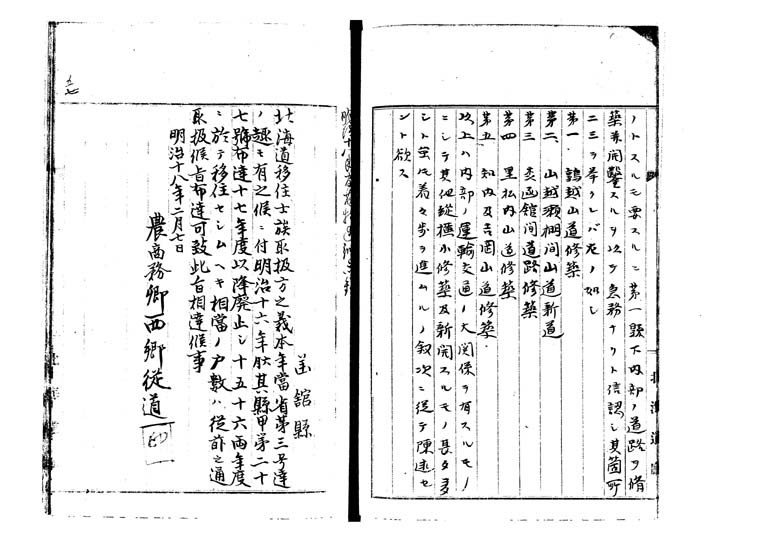 ノトスルモ要スルニ第一縣下内部ノ道路ヲ脩
築兼開鑿スルヲ以テ急務ナリト信認シ其箇所
二三ヲ挙クレバ左ノ如シ
第一 鶉越山道修築
第二 山越瀬棚間山道新道
第三 炭函館間道路修築
第四 黒松内山道修築
第五 知内及吉岡山道修築
以上ハ内部ノ運輸交通ノ大関係ヲ有スルモノ
ニシテ其他縦横小修築及新開スルモノ甚タ多
シト雖モ着々歩ヲ進ムルノ叙次ニ従テ陳述セ
ント欲ス
函館縣
北海道移住士族取扱方之義本年當省第三号達
ノ趣モ有之候ニ付明治十六年 其縣甲第二十
七號布達十七年度以降廃止シ十五十六両年度
ニ於テ移住セシムヘキ相當ノ戸数ハ従前之通
取扱候旨布達可致此旨相達候事
明治十八年二月七日
農商務卿西郷従道 印